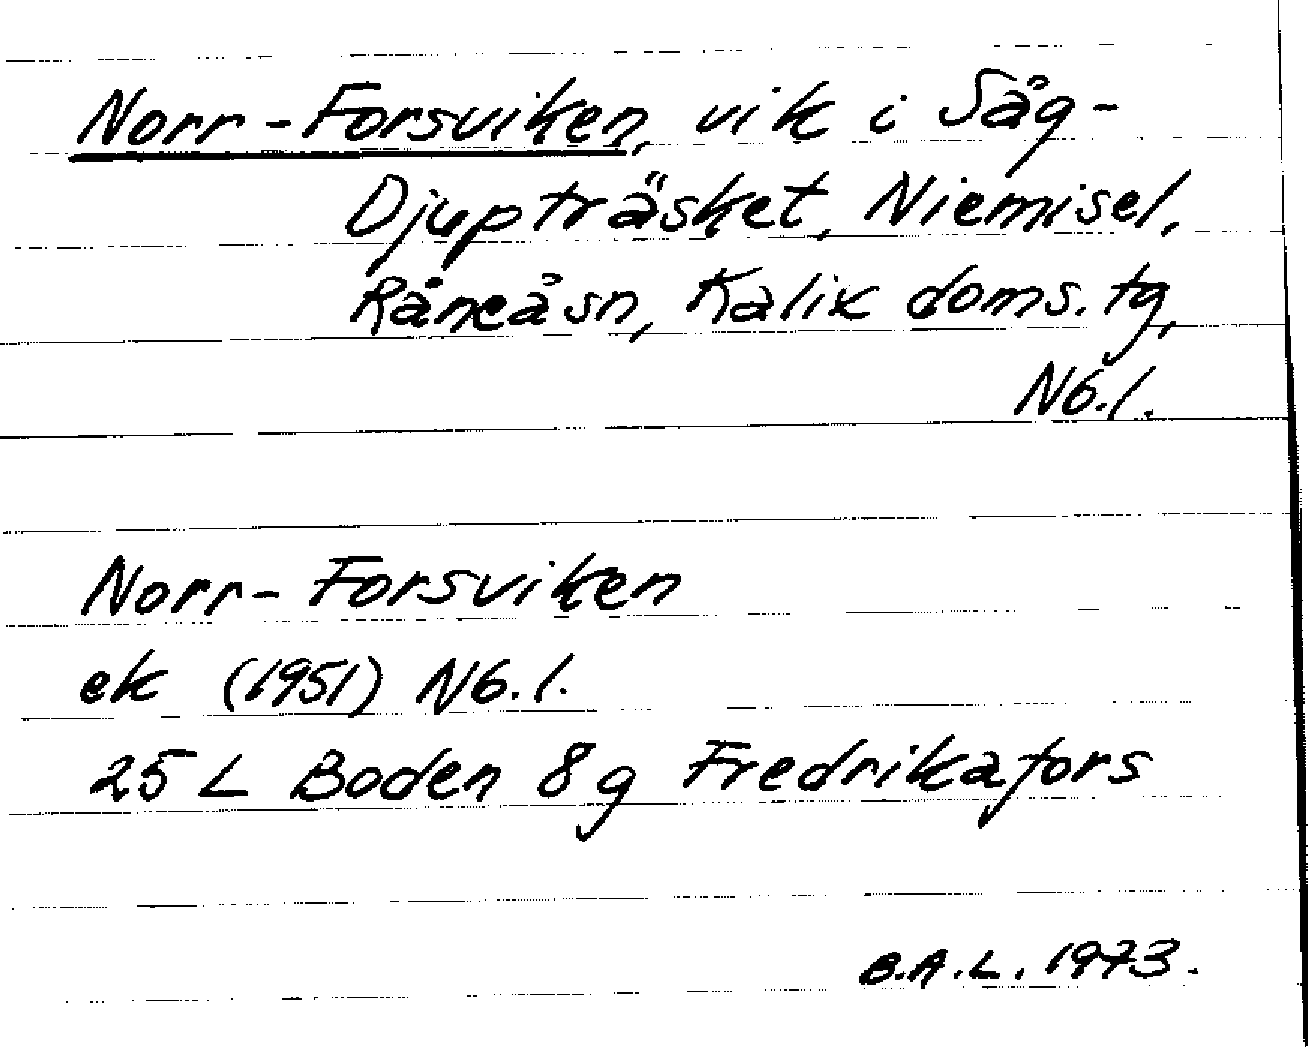 Norr-Forsviken, vik i Såg-
Djupträsket, Niemisel,
Råneå sn, Kalix doms. tg,
Nb. l.
Norr-Forsviken
ek (1951) Nb. l.
25 L Boden 8 g Fredrikafors
B.A.L. 1973.